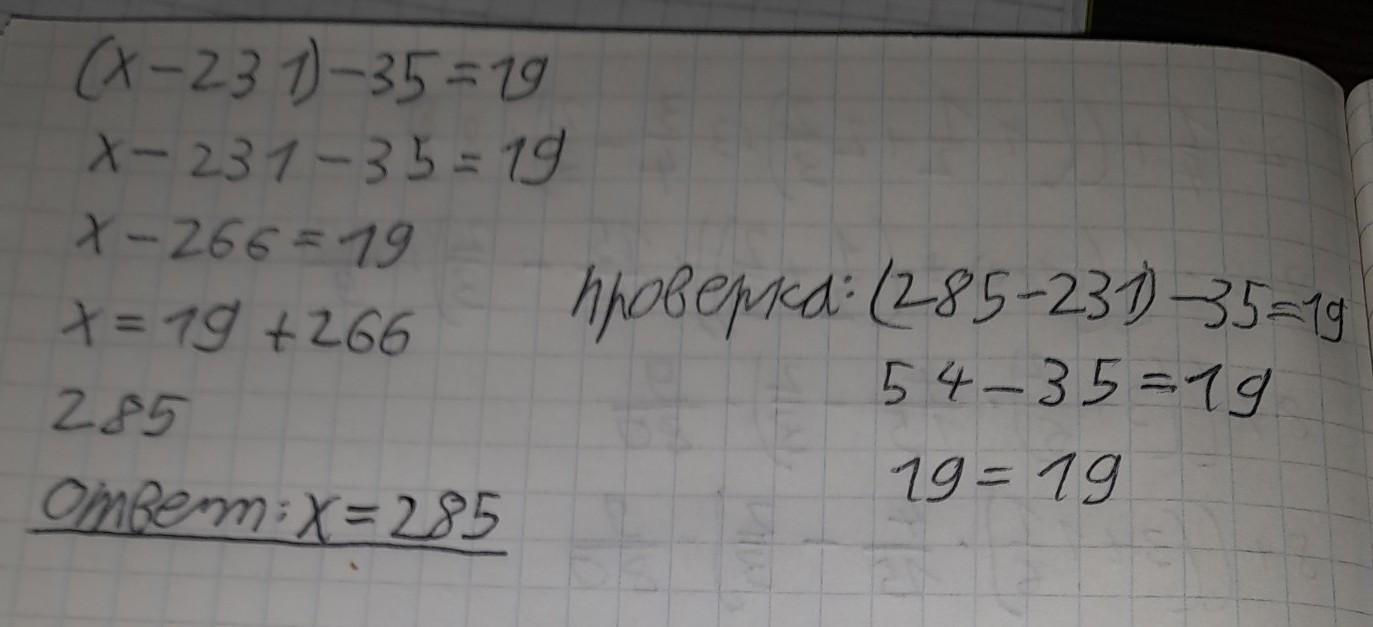 (x-231)-35=19
x-231-35=19
x-266=19
x=19+266
285
Ответ: x=285
проверка: (285-231)-35=19
54-35=19
19=19